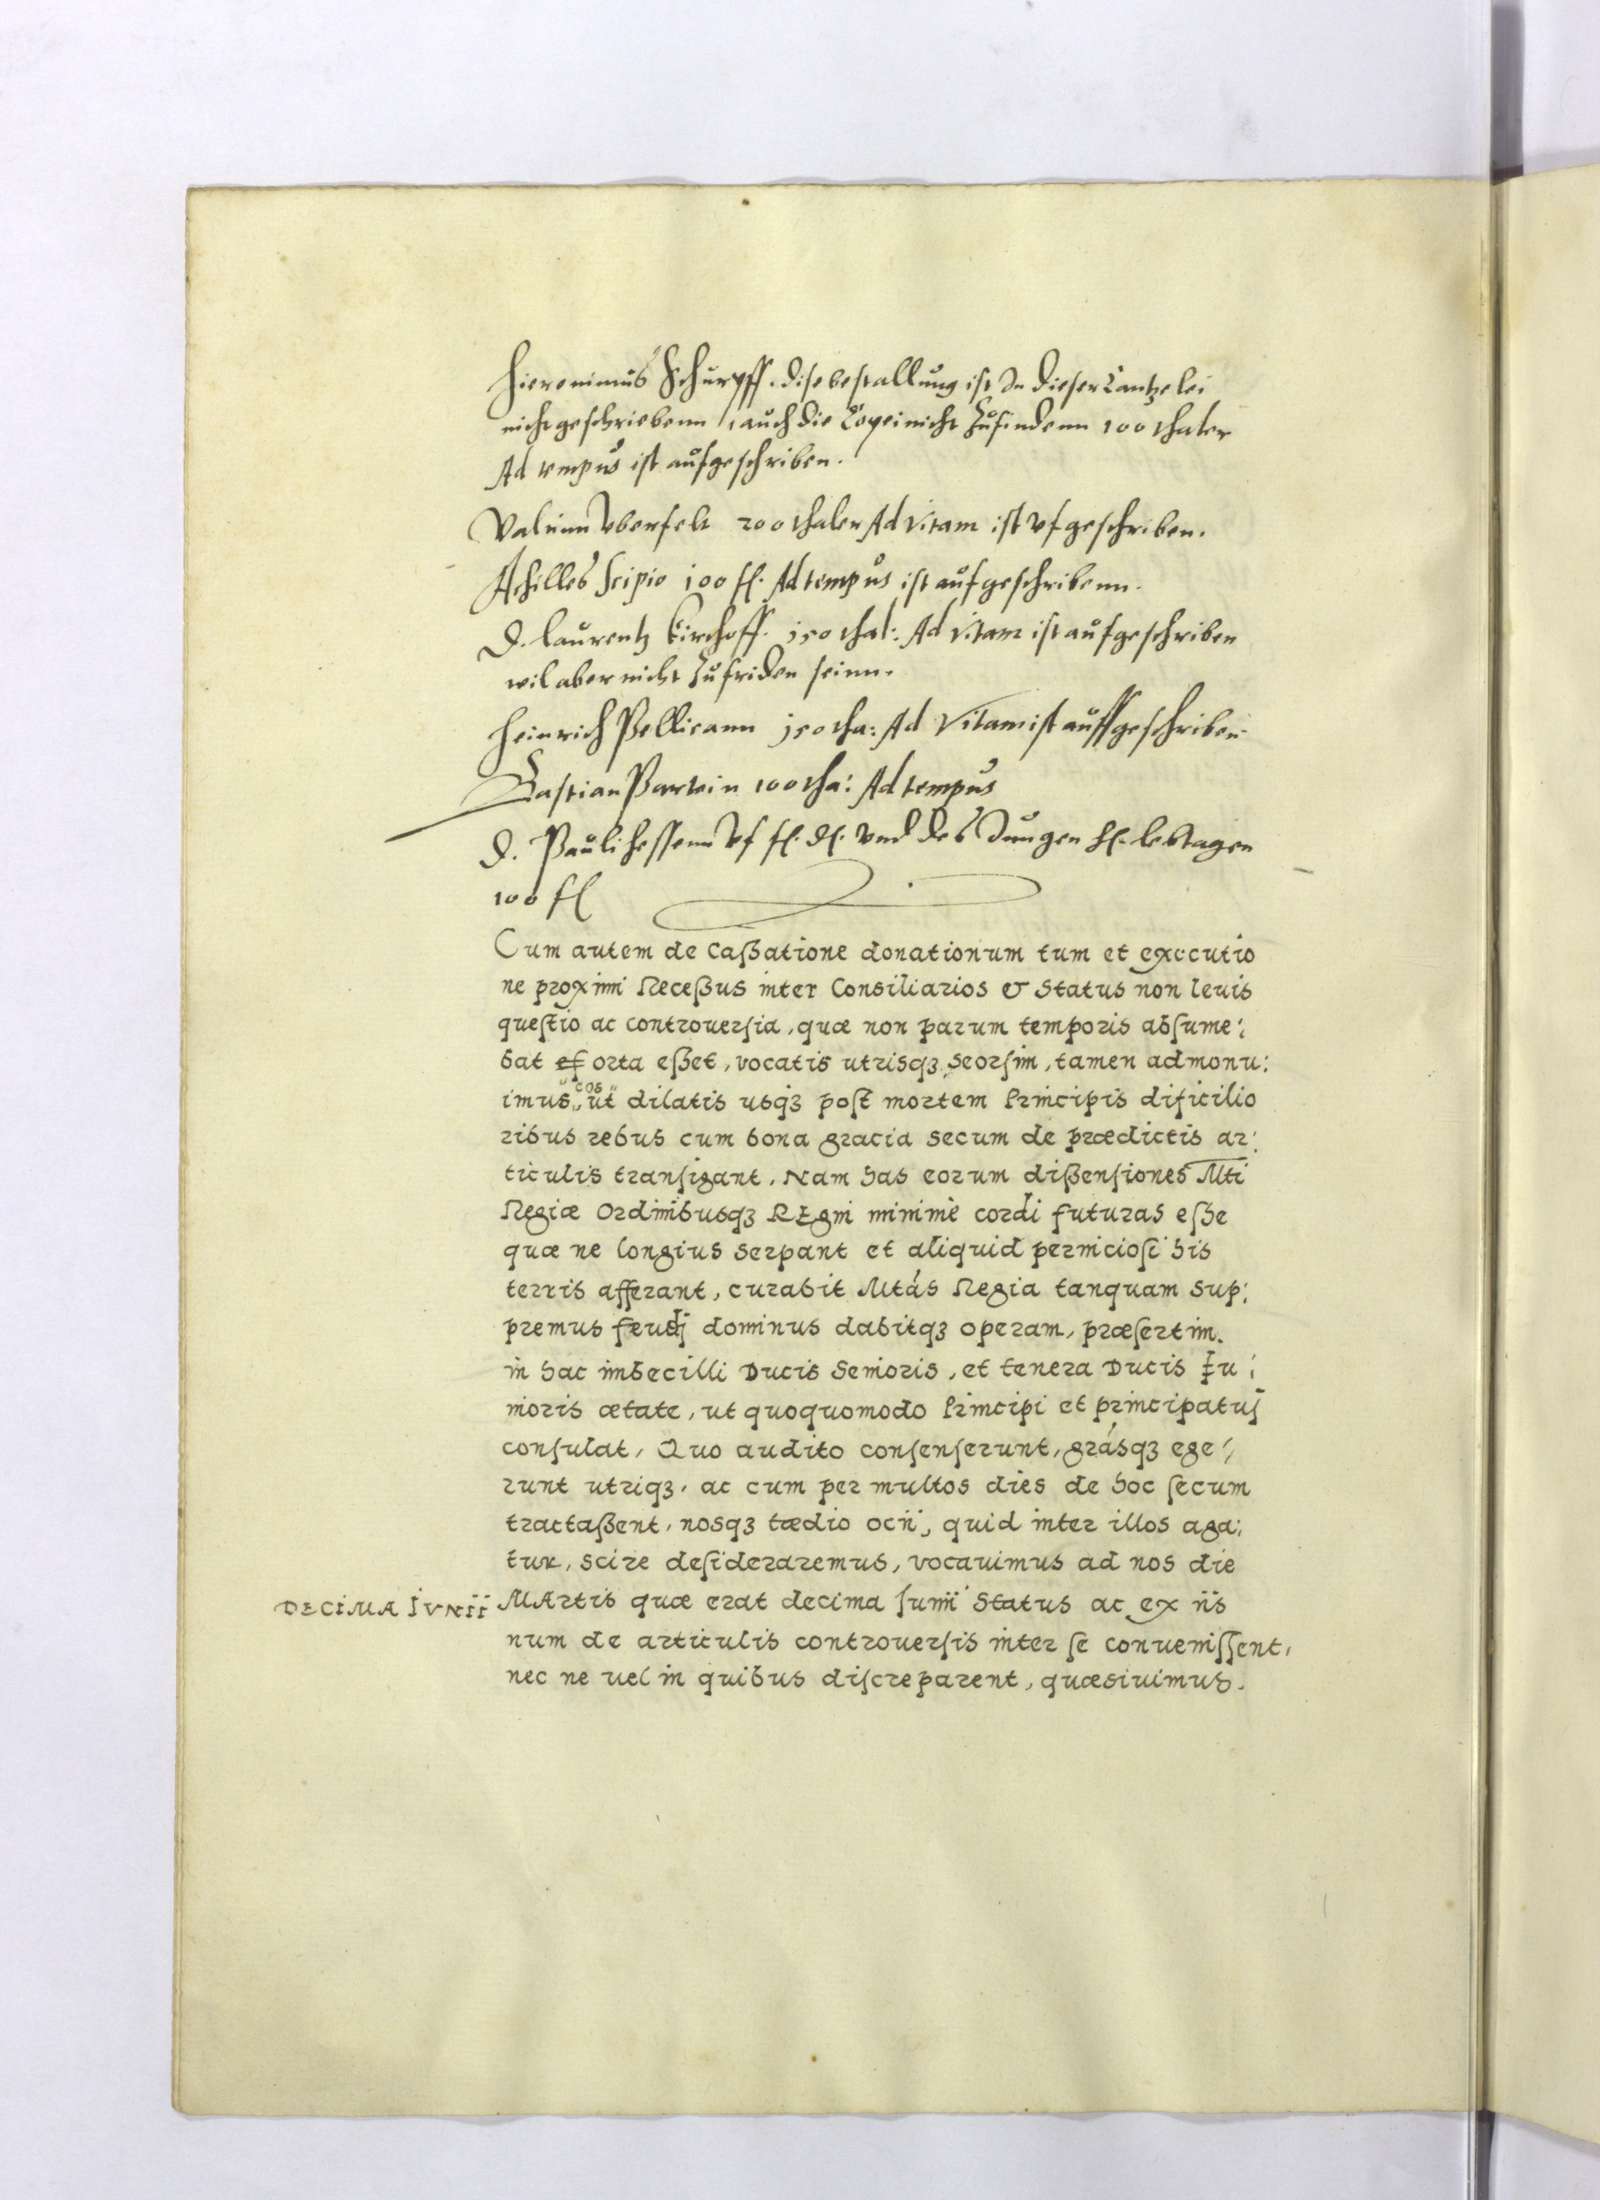 Hieronimus Schurpff. dise bestallung ist In dieser Cantzelei
nicht geschriebenn, auch die Copei nicht zufindenn 100 thaler
Ad tempus ist aufgeschriben.
Valtinn Vberfelt 200 thaler Ad Vitam ist vfgeschriben.
Achilles Scipio 100 fl. Ad tempus ist aufgeschribenn.
D. Laurentz Kirchoff. 150 thal: Ad Vitam ist aufgeschriben
wil aber nicht zufriden seinn.
Heinrich Pellicann 150 tha: Ad Vitam ist auffgeschriben.
Bastian Partein 100 tha: Ad tempus
D. Pauli hessenn Vf fl. dl. vnd des Jungen hl. lebtagen
100 fl
Cum autem de Caßatione donationum tum et executio
ne proximi Receßus inter Consiliarios & Status non leuis
questio ac controuersia, quæ non parum temporis absume:
bat ef orta eßet, vocatis utrisqꝫ seorsim, tamen admonu:
imus eos ut dilatis usqꝫ post mortem Principis dificilio
ribus rebus cum bona gracia secum de prædictis ar:
ticulis transigant. Nam has eorum dißensiones Mti
Regiæ Ordinibusqꝫ REgni minimè cordi futuras esse
quæ ne longius serpant et aliquid perniciosi his
terris afferant, curabit Mtás Regia tanquam sup:
premus feudi dominus dabitqꝫ operam, præsertim.
in hac imbecilli Ducis Senioris, et tenera Ducis Iu:
nioris ætate, ut quoquomodo Principi et principatui
consulat, Quo audito consenserunt, grásqꝫ ege:
runt utriqꝫ, ac cum per multos dies de hoc secum
tractaßent, nosqꝫ tædio ocii, quid inter illos aga:
tur, scire desideraremus, vocauimus ad nos die
DECIMA IVNII MArtis quæ erat decima Iunii Status ac ex iis
num de articulis controuersis inter se conuenissent,
nec ne uel in quibus discreparent, quæsiuimus.